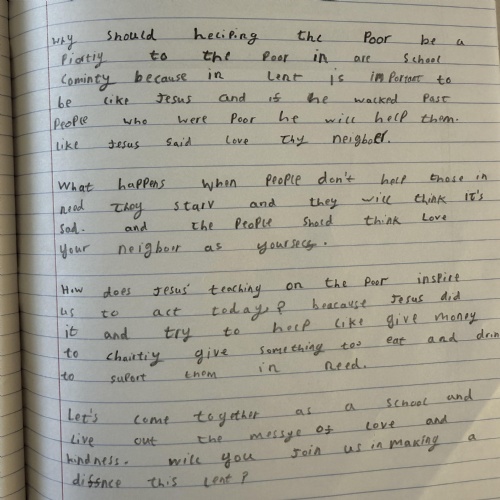 Why should helping the Poor be a
Piority to the Poor in are School
Cominty because in Lent is importont to
be like Jesus and if he walked Past
People who were Poor he will help them.
Like Jesus said Love Thy neigboer.
What happens when People don't help those in
need They starv and they will think it's
sad. and the People shold think Love
your neigboir as yourself.
How does Jesus' teaching on the Poor inspire
us to act today? beacause Jesus did
it and try to help like give money
to chairtiy give something too eat and drin
to suport them in need.
Let's come together as a school and
live out the messge of love and
kindness. will you Join us in making a
diffence this Lent?